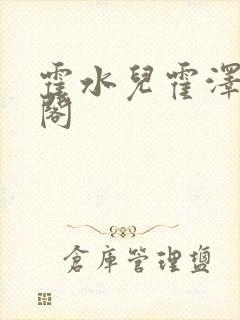 霍水兒霍澤
閣
倉庫管理鹽